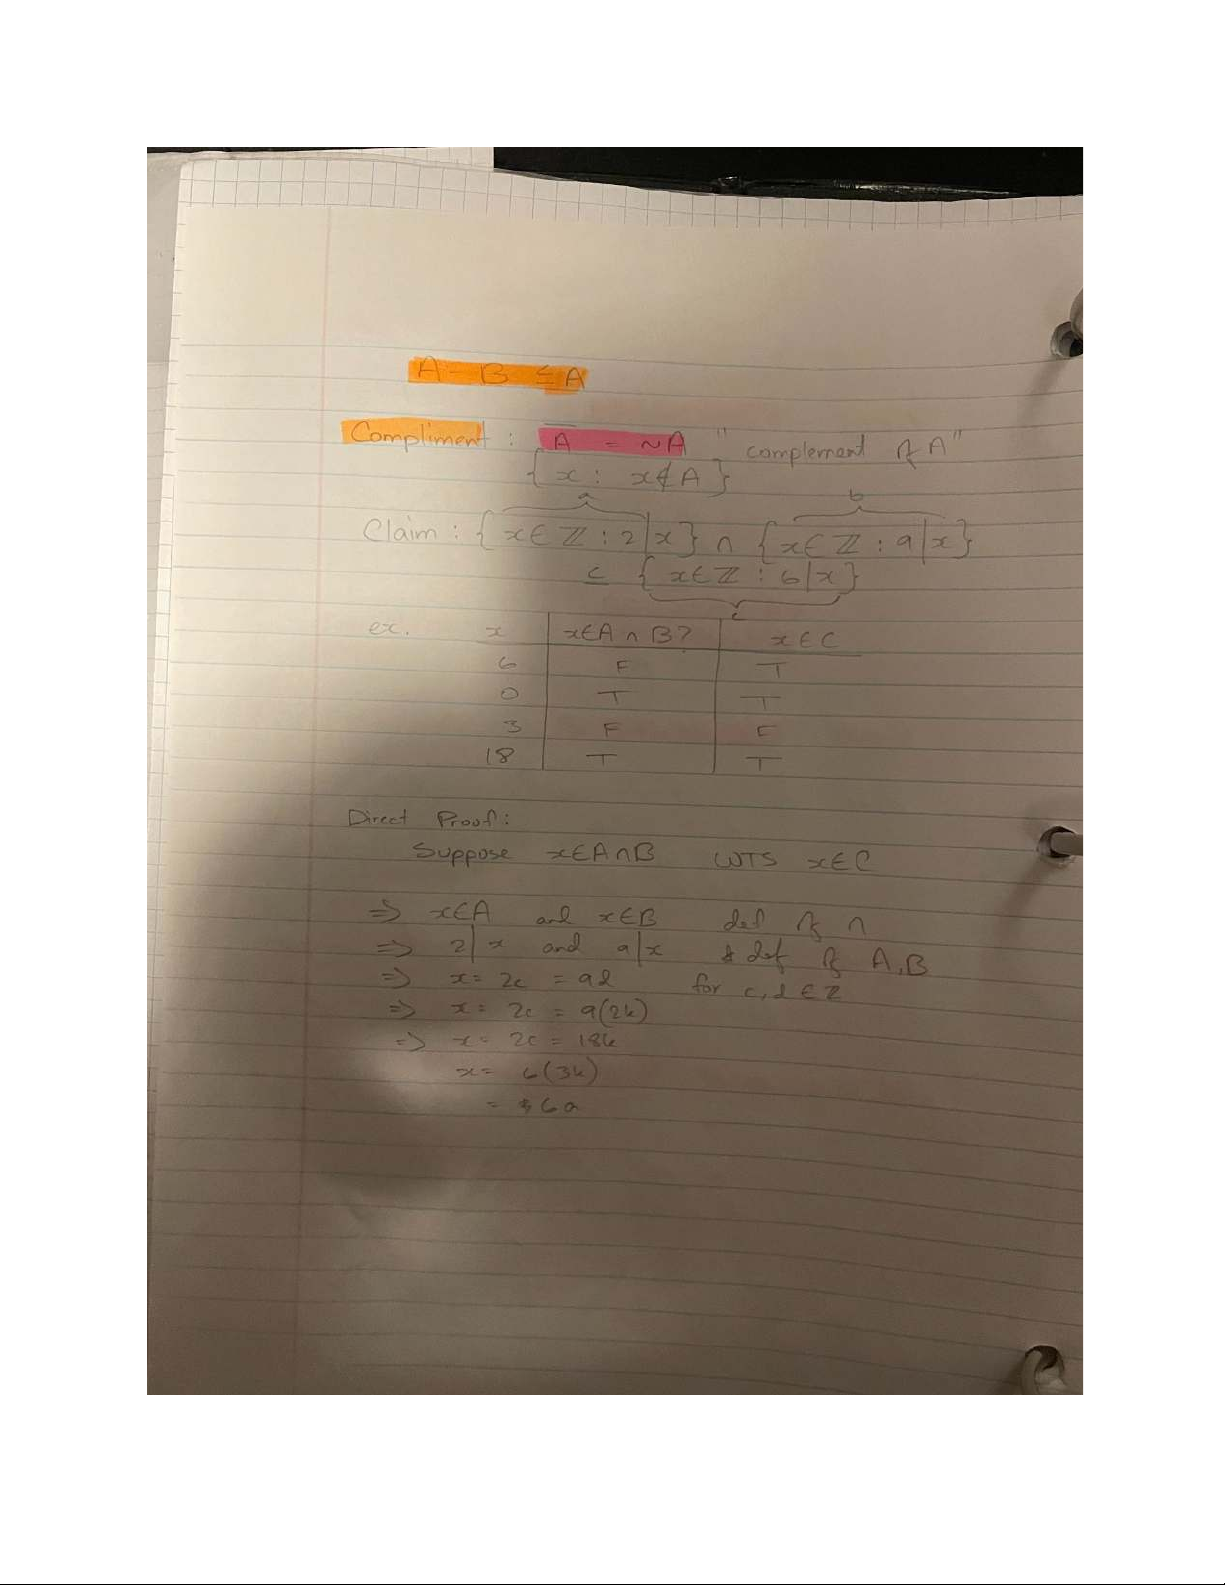 A - B ⊆ A
Compliment : A̅ = ~A " complement of A"
{ x : x∉A }
a b
Claim : { x∈ℤ : 2|x} ∩ { x∈ℤ : 9|x}
⊆ { x∈ℤ : 6|x}
c
ex. x x∈A ∩ B? x∈C
6 F T
0 T T
3 F F
18 T T
Direct Proof:
Suppose x∈A∩B WTS x∈C
⇒ x∈A and x∈B def of ∩
⇒ 2|x and 9|x def of A,B
⇒ x= 2c = 9d for c,d ∈ ℤ
⇒ x= 2c = 9(2k)
⇒ x= 2c = 18k
x= 6(3k)
= 6a